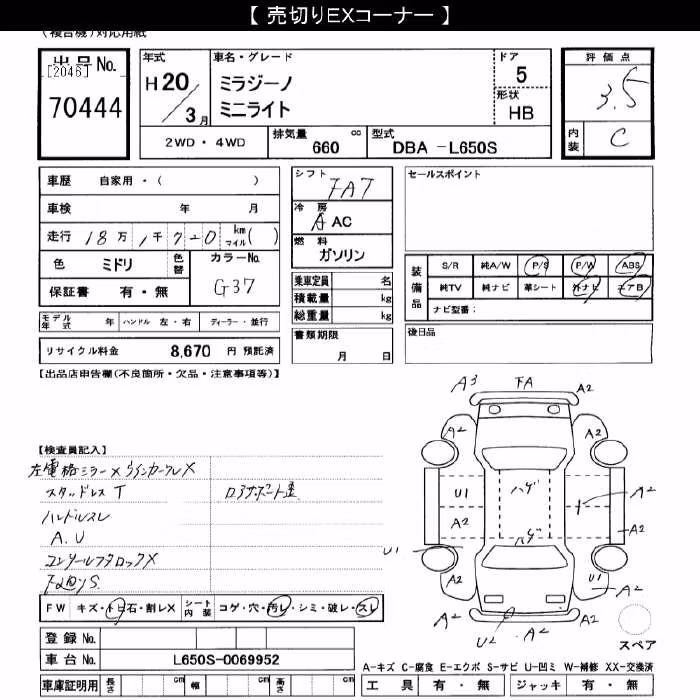 【 売切りEXコーナー 】
(複合機)対応用紙
出品No.
[2046]
70444
年式
H20/3月
車名・グレード
ミラジーノ
ミニライト
ドア
5
形状
HB
評価点
3.5
内装
C
2WD・4WD
排気量
660 cc
型式
DBA -L650S
車歴 自家用・( )
車検 年 月
走行 18万1千7-0 km マイル( )
色 ミドリ
色替
カラーNo.
G37
保証書 有・無
モデル年式 年 ハンドル 左・右 ディーラー・並行
リサイクル料金 8,670 円 預託済
シフト
FAT
冷房
A AC
燃料
ガソリン
乗車定員 名
積載量 kg
総重量 kg
書類期限
月 日
セールスポイント
装備品
S/R 純A/W P/S P/W ABS
純TV 純ナビ 革シート 外ナビ エアB
ナビ型番:
後日品
【出品店申告欄(不良箇所・欠品・注意事項等)】
【検査員記入】
左電格ミラー×
スタッドレス T
ハンドルスレ
A.U
FW キズ・トビ石・割レX
シート内装 コゲ・穴・汚レ・シミ・破レ・スレ
登録 No.
車台 No. L650S-0069952
車庫証明用 長さ cm 幅 cm 高さ cm
A3 FA A2
A2 A2
U1 ハゲ A2
A2 A2
ハゲ
U1
A2 U1 A2
A2 A2
U2
スペア
A-キズ C-腐食 E-エクボ S-サビ U-凹ミ W-補修 XX-交換済
工具 有・無 ジャッキ 有・無